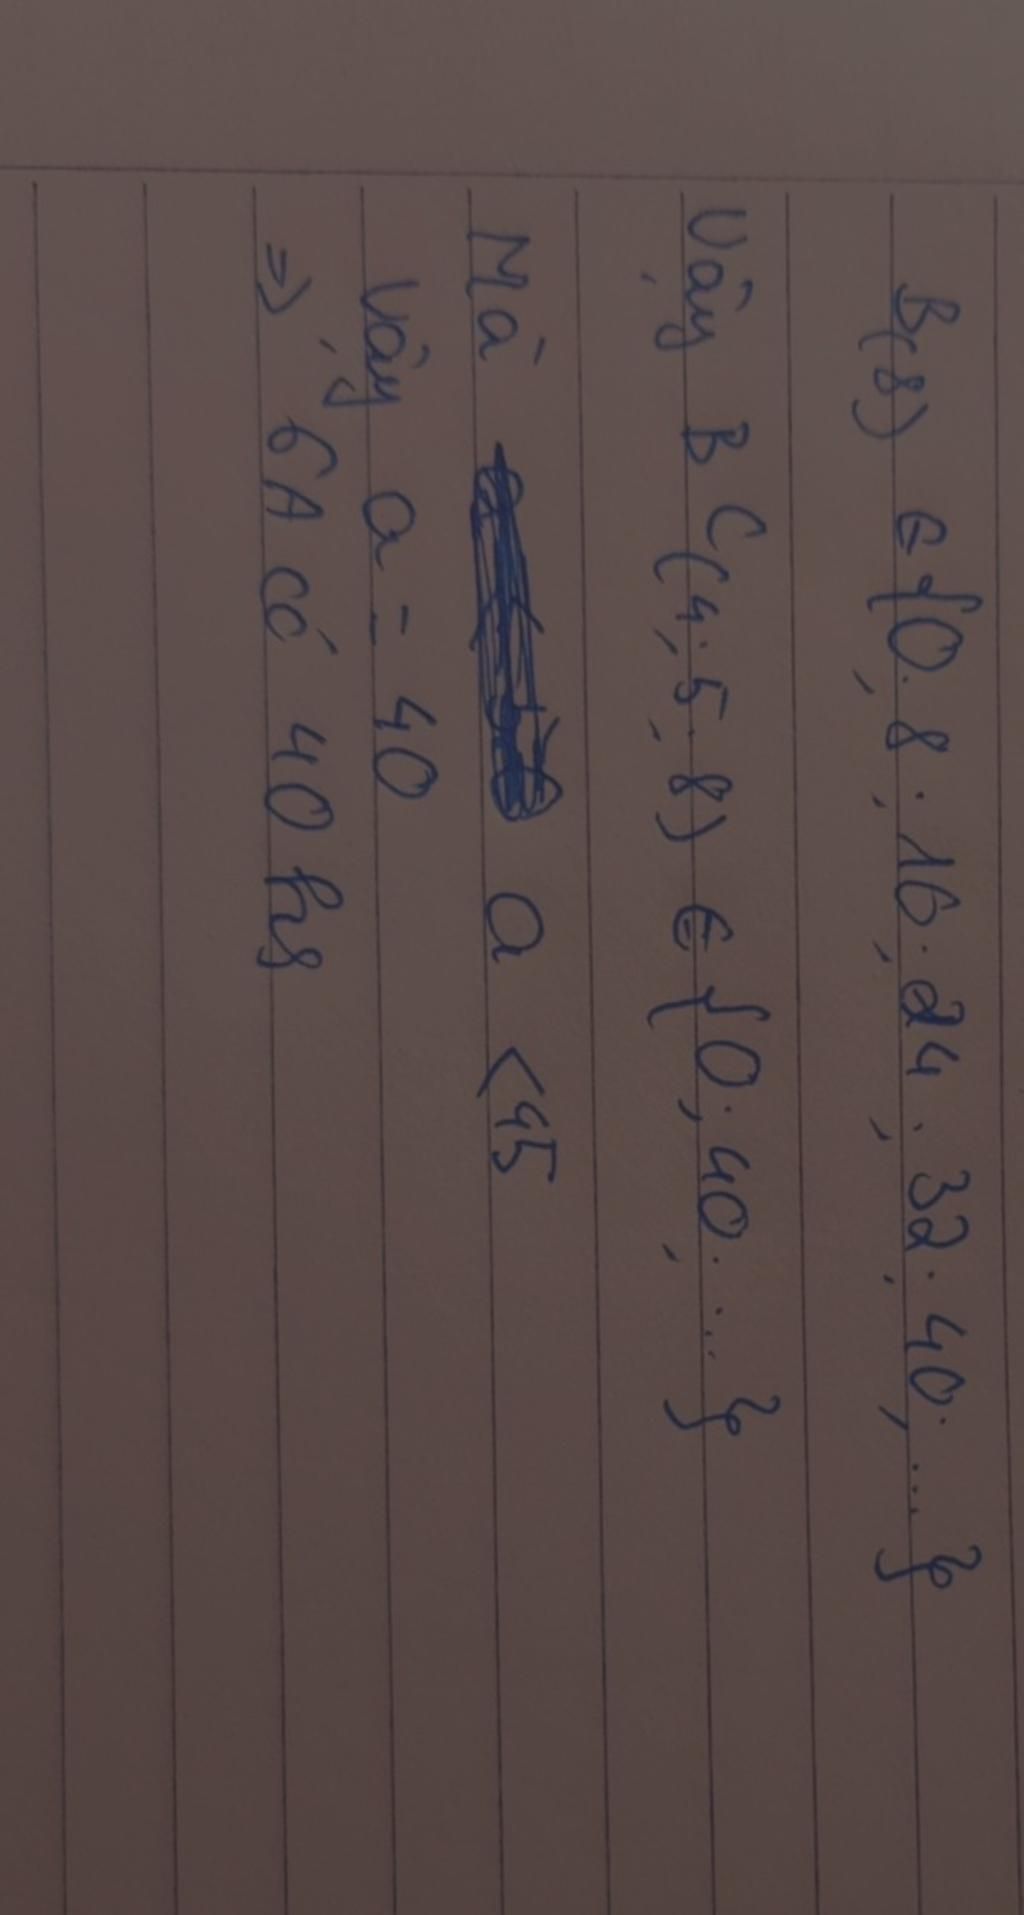 B(8) ∈ {0; 8; 16; 24; 32; 40; ...}
Vậy BC(4; 5; 8) ∈ {0; 40; ...}
Mà a < 45
Vậy a = 40
=> 6A có 40 hs